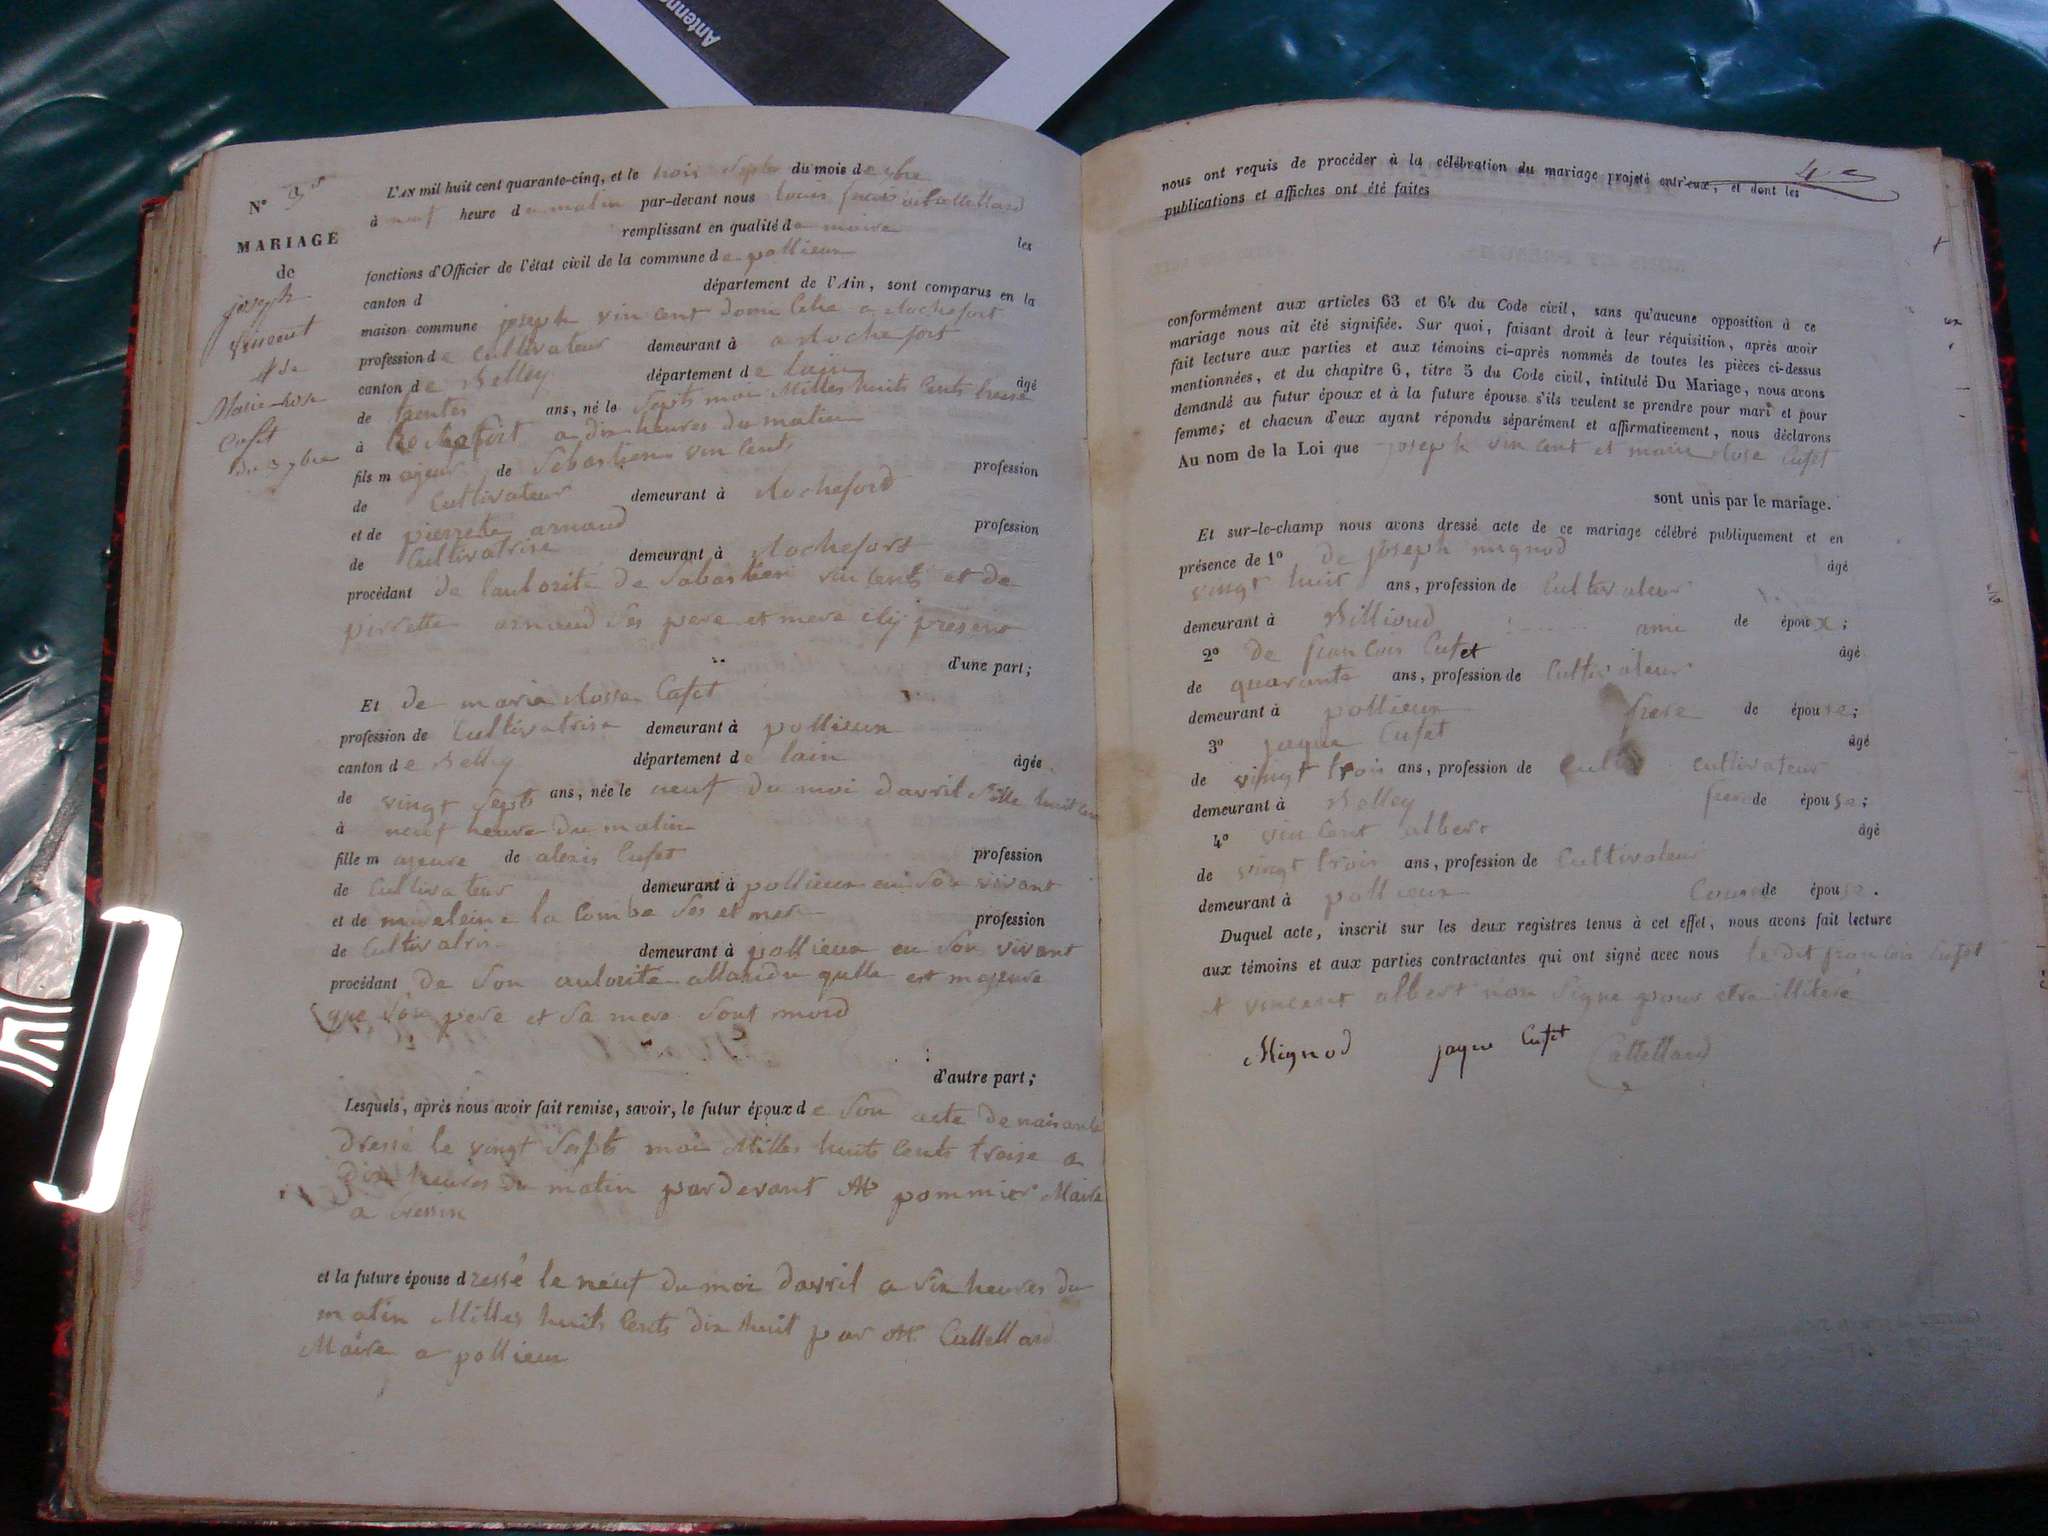 Antenne
N° 3
MARIAGE
de
joseph
vincent
Marie-rose
Cufet
du 3 7bre
L'AN mil huit cent quarante-cinq, et le trois du mois de
à neuf heure du matin par-devant nous louis
remplissant en qualité de maire les
fonctions d'Officier de l'état civil de la commune de pollieux
canton d département de l'Ain, sont comparus en la
maison commune joseph vincent a Rochefort
profession de Cultivateur demeurant à a Rochefort
canton de Belley département de lain âgé
de trentes ans, né le Septs mai Milles huits Cents treise
à Rochefort a dix heures du matin
fils majeur de Sebastien vincent profession
de Cultivateur demeurant à Rocheford
et de pierrete arnaud profession
de Cultivatrise demeurant à Rochefort
procédant de lautorité de Sabastien vincents et de
pierrette arnaud Ses pere et mere present
d'une part;
Et de maria Rosse Cufet
profession de Cultivatrise demeurant à pollieux
canton de Belley département de lain âgée
de vingt Septs ans, née le neuf du moi davril Mille huit Cent
à neuf heure du matin
fille majeure de alexis Cufet profession
de Cultivateur demeurant à pollieux en Son vivant
et de madeleine la Combe Ses et mere profession
de Cultivatris demeurant à pollieux en Son vivant
procédant de Son autorite attandu qulle est majeure
que Son pere et Sa mere Sont mord
d'autre part;
Lesquels, après nous avoir fait remise, savoir, le futur époux de Son acte de naisance
Dressé le vingt Septs mai Milles huits Cents treise a
Dix heures du matin pardevant Mr pommier Maire
a Cressin
et la future épouse dressé le neuf du moi davril a Six heures du
matin Milles huits Cents dix huit par Mr Cattelland
Maire a pollieux
4
nous ont requis de procéder à la célébration du mariage projeté entr'eux, et dont les
publications et affiches ont été faites
conformément aux articles 63 et 64 du Code civil, sans qu'aucune opposition à ce
mariage nous ait été signifiée. Sur quoi, faisant droit à leur réquisition, après avoir
fait lecture aux parties et aux témoins ci-après nommés de toutes les pièces ci-dessus
mentionnées, et du chapitre 6, titre 5 du Code civil, intitulé Du Mariage, nous avons
demandé au futur époux et à la future épouse s'ils veulent se prendre pour mari et pour
femme; et chacun d'eux ayant répondu séparément et affirmativement, nous déclarons
Au nom de la Loi que joseph vincent et marie Rose Cufet
sont unis par le mariage.
Et sur-le-champ nous avons dressé acte de ce mariage célébré publiquement et en
présence de 1° de joseph mignod âgé
vingt huit ans, profession de Cultivateur
demeurant à Billioud ami de époux;
2° de francois Cufet âgé
de quarante ans, profession de Cultivateur
demeurant à pollieux frere de épouse;
3° jaque Cufet âgé
de vingt trois ans, profession de cultivateur
demeurant à Belley frere de épouse;
4° vincent albert âgé
de vingt trois ans, profession de Cultivateur
demeurant à pollieux de épouse.
Duquel acte, inscrit sur les deux registres tenus à cet effet, nous avons fait lecture
aux témoins et aux parties contractantes qui ont signé avec nous le dit francois Cufet
et vincent albert non Signe pour etre illiteré
Mignod jaque Cufet Cattelland